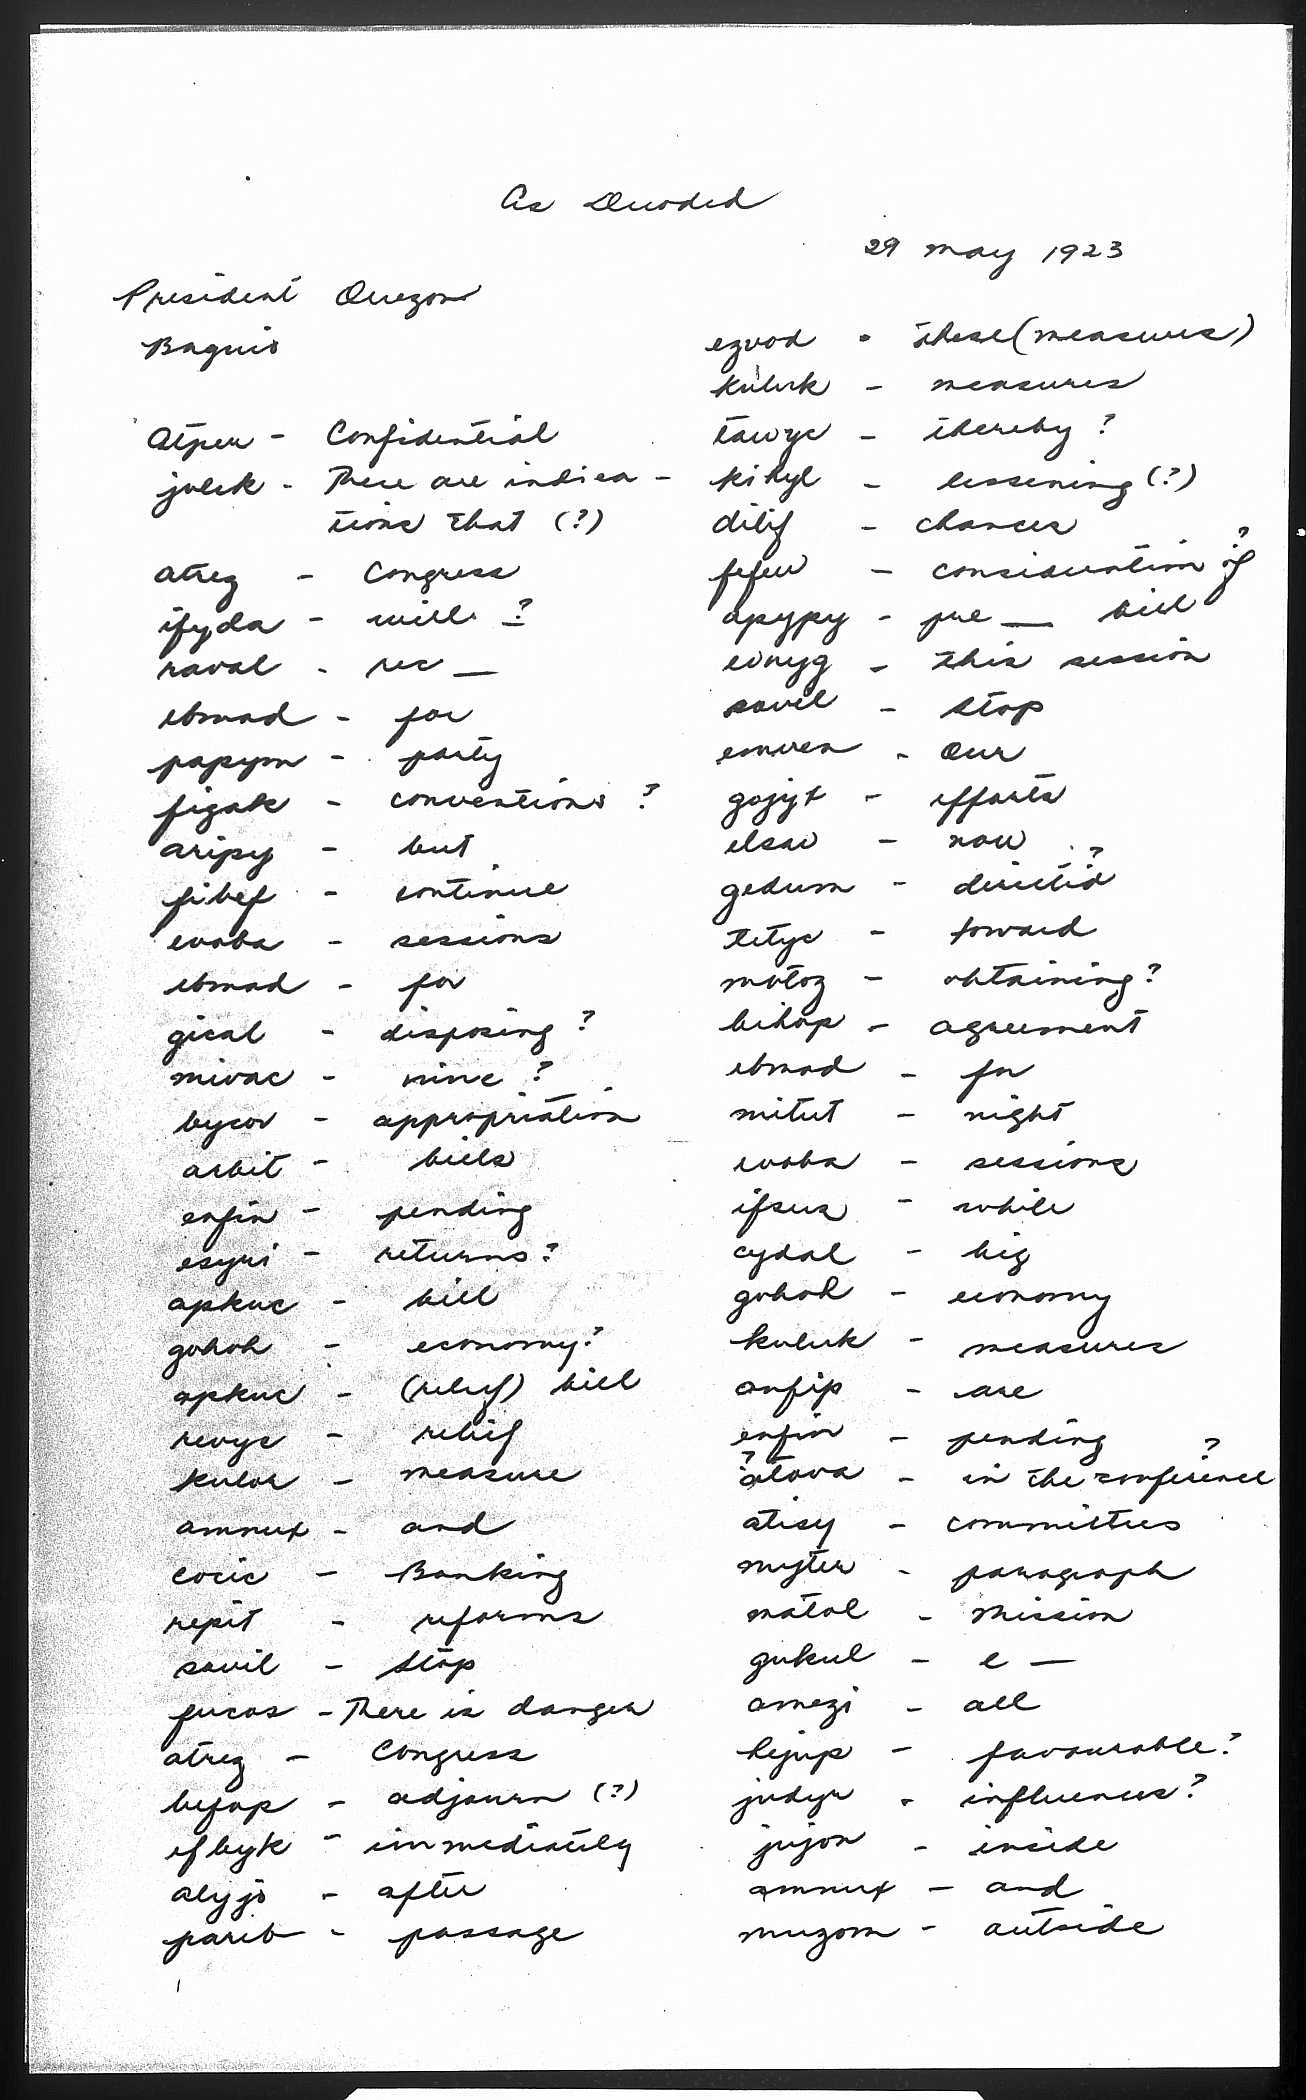 As Decoded
29 May 1923
President Quezon
Baguio
Atpeu - Confidential
julek - There are indica-
tions that (?)
atreg - Congress
ifyda - will ?
raval - rec —
ebmad - for
papym - party
figak - conventions ?
aripy - but
fibef - continue
evoba - sessions
ebmad - for
gical - disposing ?
mivac - nine ?
bycov - appropriation
arbit - bills
enfin - pending
esyri - returns ?
apkuc - bill
gohoh - economy ?
apkuc - (relief) bill
revyc - relief
kulor - measure
amnux - and
cocic - Banking
repit - reforms
savil - stop
fucos - There is danger
atreg - Congress
befop - adjourn (?)
efbyk - immediately
alyjo - after
parib - passage
ezvod - these (measures)
kulerk - measures
tawyc - thereby ?
kihyl - lessening (?)
dilif - chances
fefew - consideration of ?
apypy - pre — bill
evnyg - this session
savel - stop
emwen - our
gojyt - efforts
elsaw - now
gedum - directed ?
tetyc - toward
motoz - obtaining ?
bihop - agreement
ebmad - for
mitut - night
evoba - sessions
ifsus - while
cydal - big
gohoh - economy
kulerk - measures
anfip - are
enfin - pending
? atova - in the conference ?
atisy - committees
myter - paragraph
matol - Mission
gukul - e —
amezi - all
hejup - favourable ?
judyr - influences ?
jujon - inside
amnux - and
muzom - outside